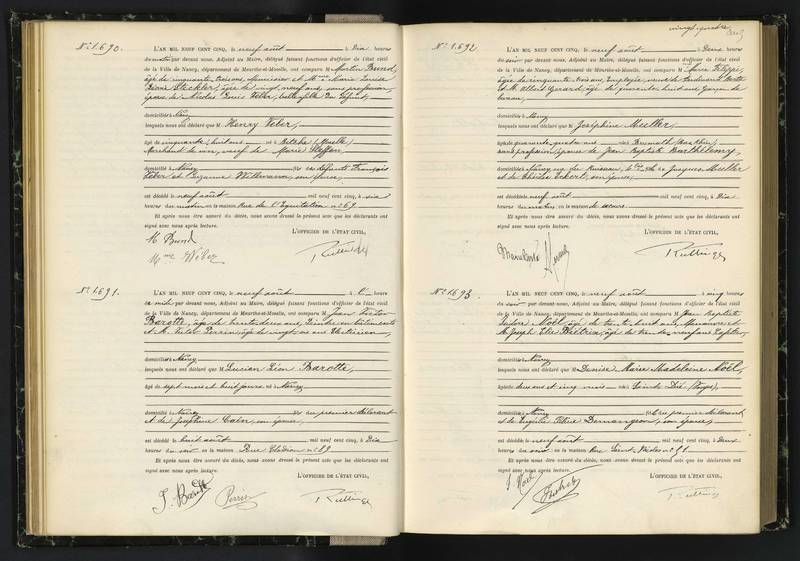 N° 1.690.
L'AN MIL NEUF CENT CINQ, le neuf août à Dix heures
du matin par devant nous, Adjoint au Maire, délégué faisant fonctions d'officier de l'état civil
de la Ville de Nancy, département de Meurthe-et-Moselle, ont comparu M Martin Bund,
âgé de cinquante trois ans, Menuisier et Mme Marie Louise
âgée de vingt neuf ans, sans profession,
épouse de Nicolas Louis Veber, belle fille du défunt,
domiciliés à Nancy
lesquels nous ont déclaré que M Henry Veber,
âgé de cinquante huit ans né à Bitche (Moselle)
Marchand de vin, veuf de Marie Steffen
domicilié à Nancy fils de défunts François
Veber et Suzanne Willemann, son épouse,
est décédé le neuf août mil neuf cent cinq, à six
heures du matin en la maison Rue de l'Equitation n° 69
Et après nous être assuré du décès, nous avons dressé le présent acte que les déclarants ont
signé avec nous après lecture.
L'OFFICIER DE L'ÉTAT CIVIL,
M Bund
Mme Wéber
N° 1.691.
L'AN MIL NEUF CENT CINQ, le neuf août à Une heure
par devant nous, Adjoint au Maire, délégué faisant fonctions d'officier de l'état civil
de la Ville de Nancy, département de Meurthe-et-Moselle, ont comparu M Jean Victor
Barotte, âgé de trente deux ans, Peintre en bâtiments
et M. Perrin, âgé de vingt six ans
domiciliés à Nancy
lesquels nous ont déclaré que M Lucien Léon Barotte,
âgé de sept mois et huit jours né à Nancy
domicilié à Nancy fils du premier déclarant
et de Joséphine son épouse,
est décédé le huit août mil neuf cent cinq, à Dix
heures du soir en la maison Rue Clodion n° 29
Et après nous être assuré du décès, nous avons dressé le présent acte que les déclarants ont
signé avec nous après lecture.
L'OFFICIER DE L'ÉTAT CIVIL,
J. Barotte Perrin
vingt quatre
N° 1.692
L'AN MIL NEUF CENT CINQ, le neuf août à Deux heures
du soir par devant nous, Adjoint au Maire, délégué faisant fonctions d'officier de l'état civil
de la Ville de Nancy, département de Meurthe-et-Moselle, ont comparu M
âgée de cinquante trois ans, Employée, veuve de
et M. Albert âgé de quarante huit ans Garçon de
bureau,
domiciliés à Nancy
lesquels nous ont déclaré que M Joséphine Muller,
âgée de quarante quatre ans née à Brumath (Bas Rhin),
sans profession, épouse de Jean Baptiste Barthélemy,
domiciliée à Nancy fille de Jacques Muller
et de Thérèse son épouse,
est décédée le neuf août mil neuf cent cinq, à Dix
heures du matin en la maison de secours
Et après nous être assuré du décès, nous avons dressé le présent acte que les déclarants ont
signé avec nous après lecture.
L'OFFICIER DE L'ÉTAT CIVIL,
N° 1.693
L'AN MIL NEUF CENT CINQ, le neuf août à cinq heures
du soir par devant nous, Adjoint au Maire, délégué faisant fonctions d'officier de l'état civil
de la Ville de Nancy, département de Meurthe-et-Moselle, ont comparu M Jean Baptiste
Isidore Noël, âgé de trente huit ans, Manœuvre et
M. Joseph âgé de trente neuf ans
domiciliés à Nancy
lesquels nous ont déclaré que M Denise Marie Madeleine Noël,
âgée de deux ans et cinq mois née à Saint Dié (Vosges),
domiciliée à Nancy fille du premier déclarant
et de Eugénie Demangeon, son épouse,
est décédée le neuf août mil neuf cent cinq, à Deux
heures du soir en la maison Rue Saint Nicolas n° 51
Et après nous être assuré du décès, nous avons dressé le présent acte que les déclarants ont
signé avec nous après lecture.
L'OFFICIER DE L'ÉTAT CIVIL,
J. Noël